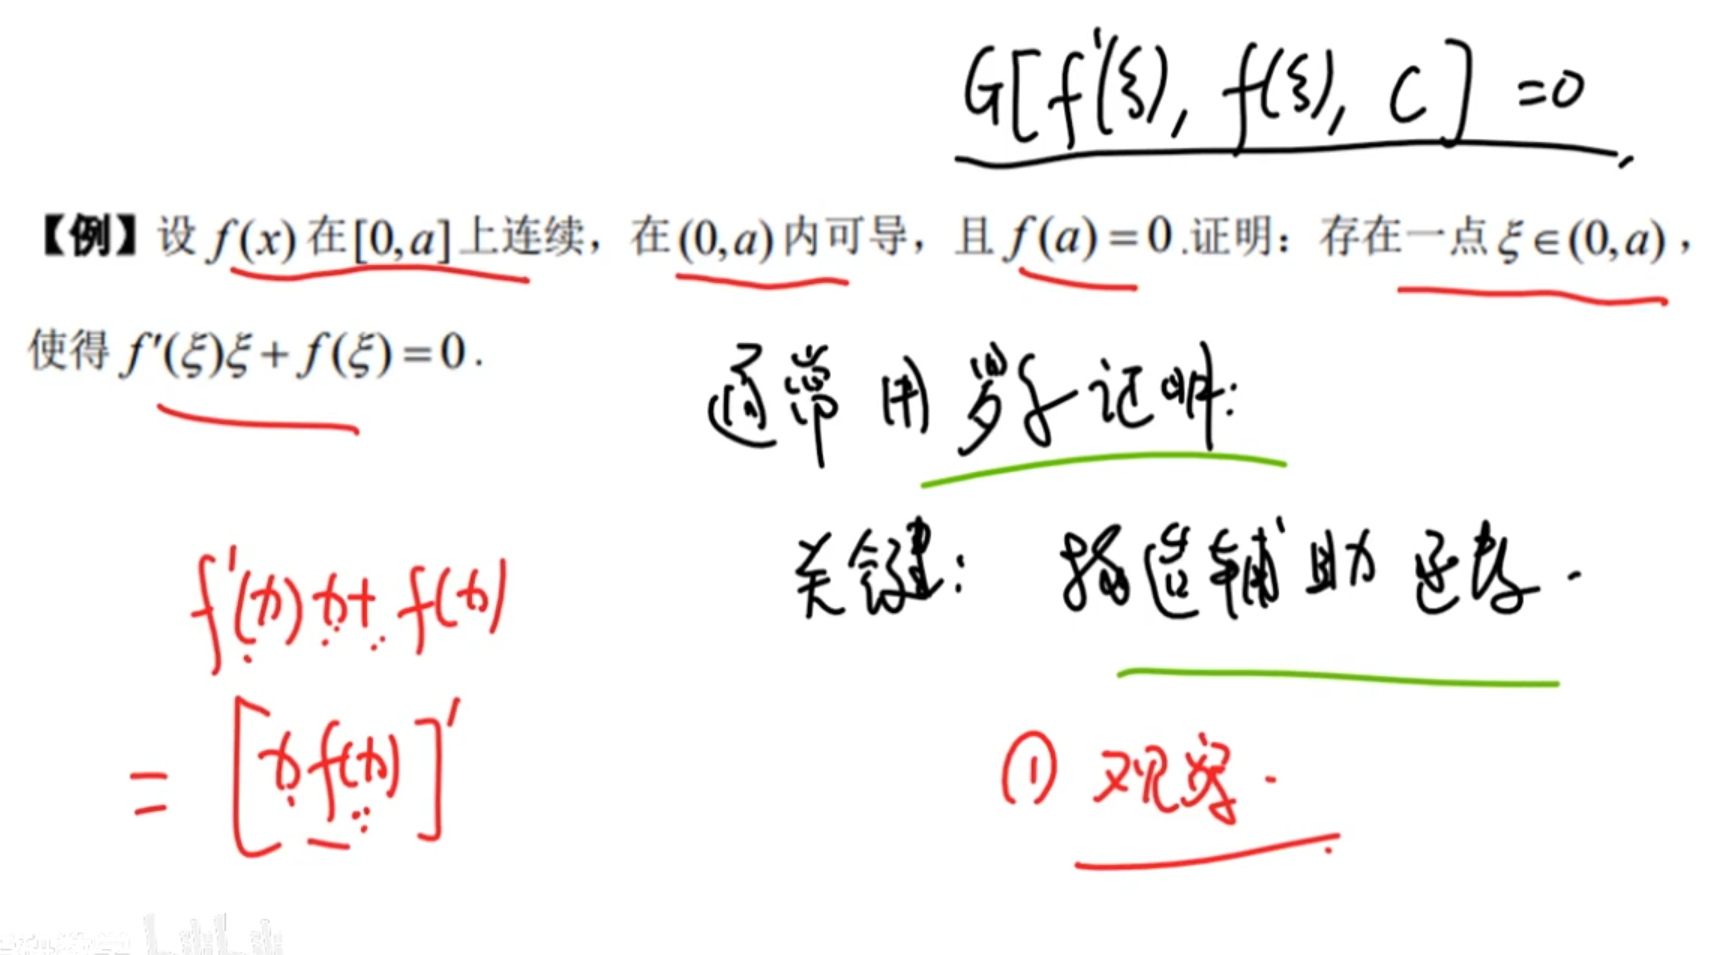 G[f'(ξ), f(ξ), C] =0
【例】设 f(x) 在 [0,a] 上连续，在 (0,a) 内可导，且 f(a)=0.证明：存在一点 ξ∈(0,a)，
使得 f'(ξ)ξ+f(ξ)=0.
通常用罗尔证明：
关键： 构造辅助函数.
f'(x)x+f(x)
① 观察.
= [xf(x)]'